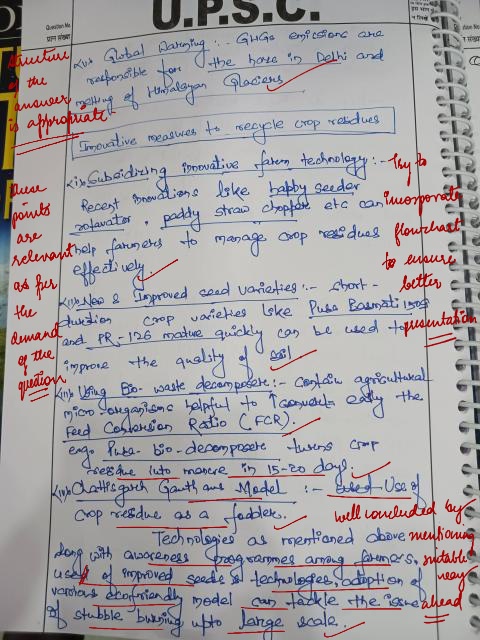 U.P.S.C.
Question No.
प्रश्न संख्या
<v> Global Warming :- GHGs emissions are
responsible for the haze in Delhi and
melting of Himalayan Glaciers
Structure
of the
answer
is appropriate
Innovative measures to recycle crop residues
<i> Subsidizing innovative farm technology :-
Recent innovations like happy seeder
rotavator, paddy straw chopper etc can
help farmers to manage crop residues
effectively.
Try to
incorporate
flowchart
to ensure
better
presentation
these
points
are
relevant
as per
the
demand
of the
question
<ii> New & Improved seed varieties :- short-
duration crop varieties like Pusa Basmati 1509
and PR-126 mature quickly can be used to
improve the quality of soil
<iii> Using Bio-waste decomposers :- Contain agricultural
micro organisms helpful to ↑ convert easily the
Feed Conversion Ratio (FCR).
eg. Pusa-bio-decomposers turns crop
residue into manure in 15-20 days.
<iv> Chattisgarh Gauthans Model :- Use of
Crop residue as a fodder.
Technologies as mentioned above
along with awareness programmes among farmers,
use of improved seeds & technologies, adoption of
various ecofriendly model can tackle the issue
of stubble burning upto large scale.
well concluded by
mentioning
suitable
way
ahead